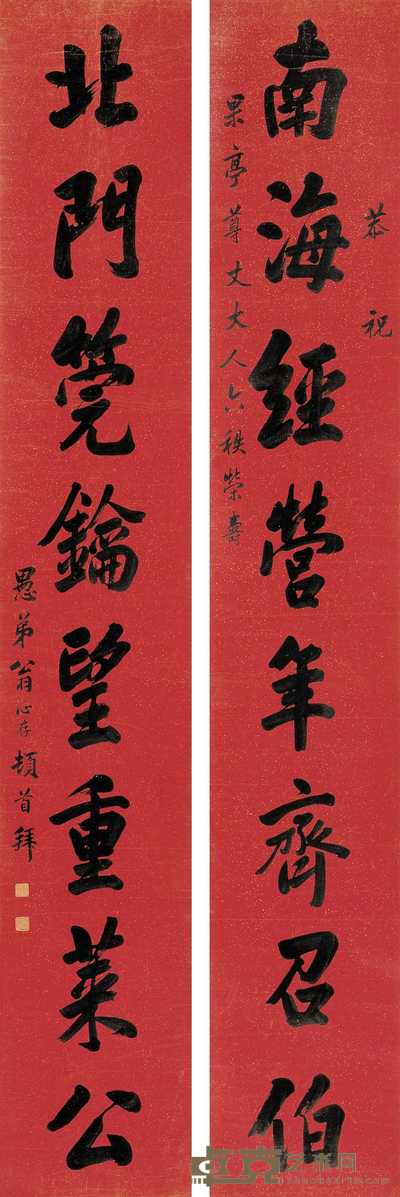 恭祝
南海經營年齊召伯
杲亭尊丈大人六秩榮壽
北門筦鑰望重萊公
愚弟翁心存頓首拜